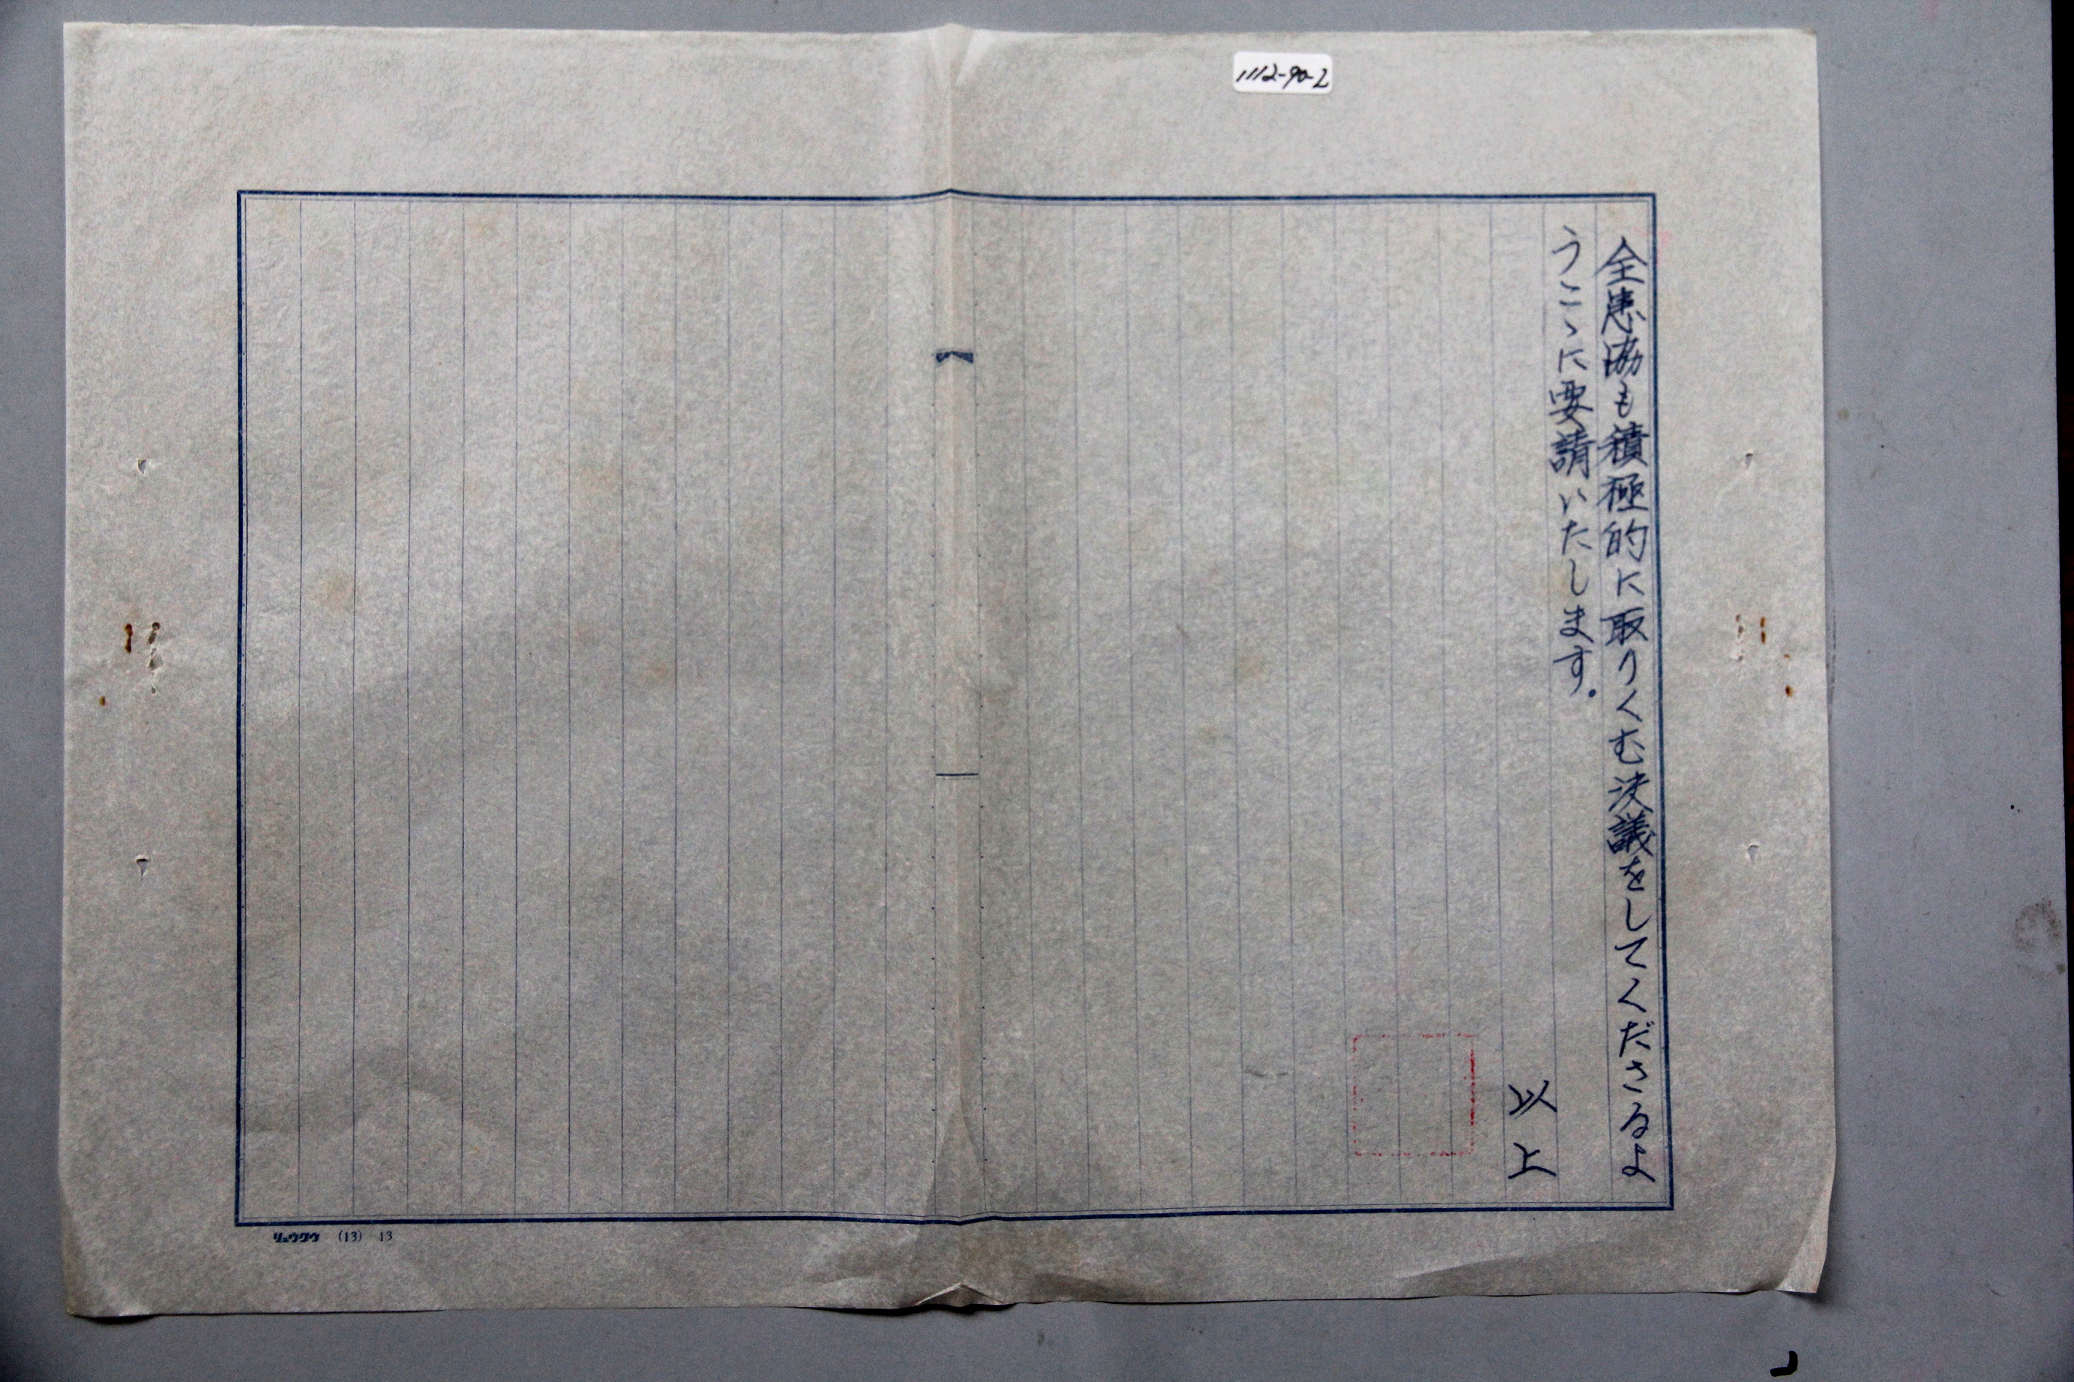 1112-90-2
全患協も積極的に取りくむ決議をしてくださるよ
うこゝに要請いたします。
以上
リュウグウ (13) 13